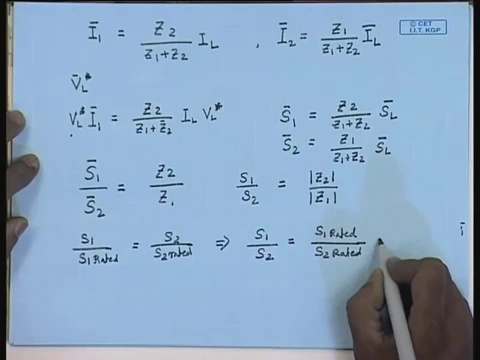 Ī₁ = Z₂ / (Z₁+Z₂) I_L , Ī₂ = Z₁ / (Z₁+Z₂) Ī_L
© CET
I.I.T. KGP
V̄_L*
V_L* Ī₁ = Z₂ / (Z₁+Z₂) I_L V_L*
S̄₁ = Z₂ / (Z₁+Z₂) S̄_L
S̄₂ = Z₁ / (Z₁+Z₂) S̄_L
S̄₁ / S̄₂ = Z₂ / Z₁
S₁ / S₂ = |Z₂| / |Z₁|
S₁ / S₁ Rated = S₂ / S₂ rated ⇒ S₁ / S₂ = S₁ Rated / S₂ Rated